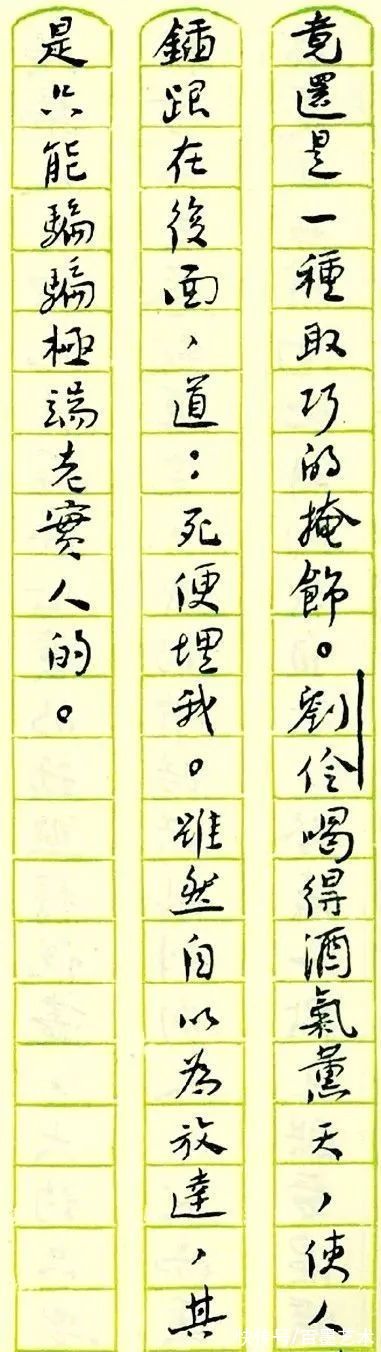 竟還是一種取巧的掩飾。劉伶喝得酒氣薰天,使人
鍤跟在後面,道:死便埋我。雖然自以為放達,其
是只能騙騙極端老實人的。